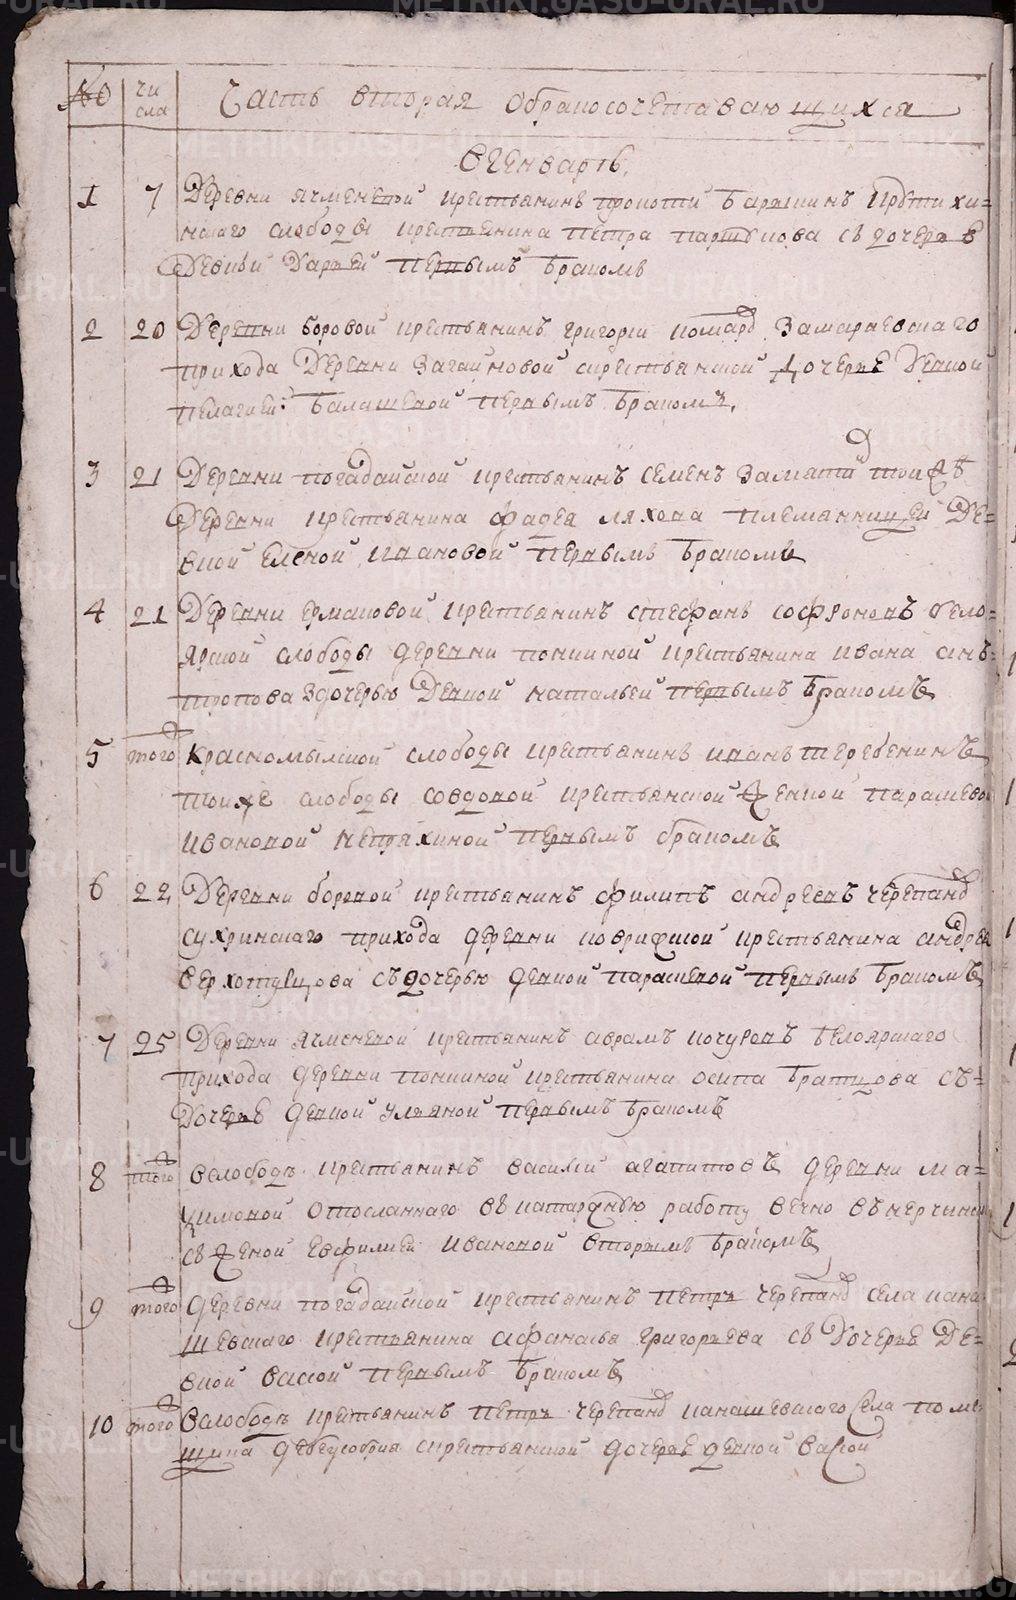 №
чи
сла
Часть вторая о бракосочетавающихся
В Генварѣ
1 7 Деревни Ячменевой крестьянинъ прокопій Барышинъ
слободы крестьянина петра паршукова съ дочерью
Девкой Дарьей первымъ бракомъ
2 20 Деревни боровой крестьянинъ григорій Замараевскаго
прихода Деревни Загайновой с крестьянской дочерью Девкой
пелагией Балашевой первымъ бракомъ.
3 21 Деревни погадайской крестьянинъ семенъ тои же
Деревни крестьянина фадея ляхова племянницей Де=
вкой еленой ивановой первымъ бракомъ
4 21 Деревни ермаковой крестьянинъ стефанъ софроновъ бело=
ярской слободы деревни крестьянина ивана ан=
тропова здочерью Девкой натальей первымъ бракомъ
5 того красномыской слободы крестьянинъ иванъ теребенинъ
тои же слободы со вдовой крестьянской женкой парасковей
ивановой непряхиной первымъ бракомъ
6 22 Деревни боровой крестьянинъ филипъ андреевъ черепанд
сухринскаго прихода деревни ковриской крестьянина андрея
верхотурцова съ дочерью девкой параскевой первымъ бракомъ
7 25 Деревни Ячменевой крестьянинъ аврамъ кочуровъ белоярскаго
прихода деревни крестьянина осипа братцова съ=
дочерью девкой ульяной первымъ бракомъ
8 того вслободѣ крестьянинъ василий агапитовъ деревни ма=
кцимовой отосланнаго в каторжную работу вечно в нерчинск
съ женой евфимией ивановой вторымъ бракомъ
9 того деревни погадайской крестьянинъ петръ черепанд села кана
шевскаго крестьянина афанасья григорьева съ дочерью де=
вкой васой первымъ бракомъ
10 того вслободѣ крестьянинъ петръ черепанд канашевскаго села поме=
щика с крестьянской дочерью девкой васой
METRIKI.GASO-URAL.RU